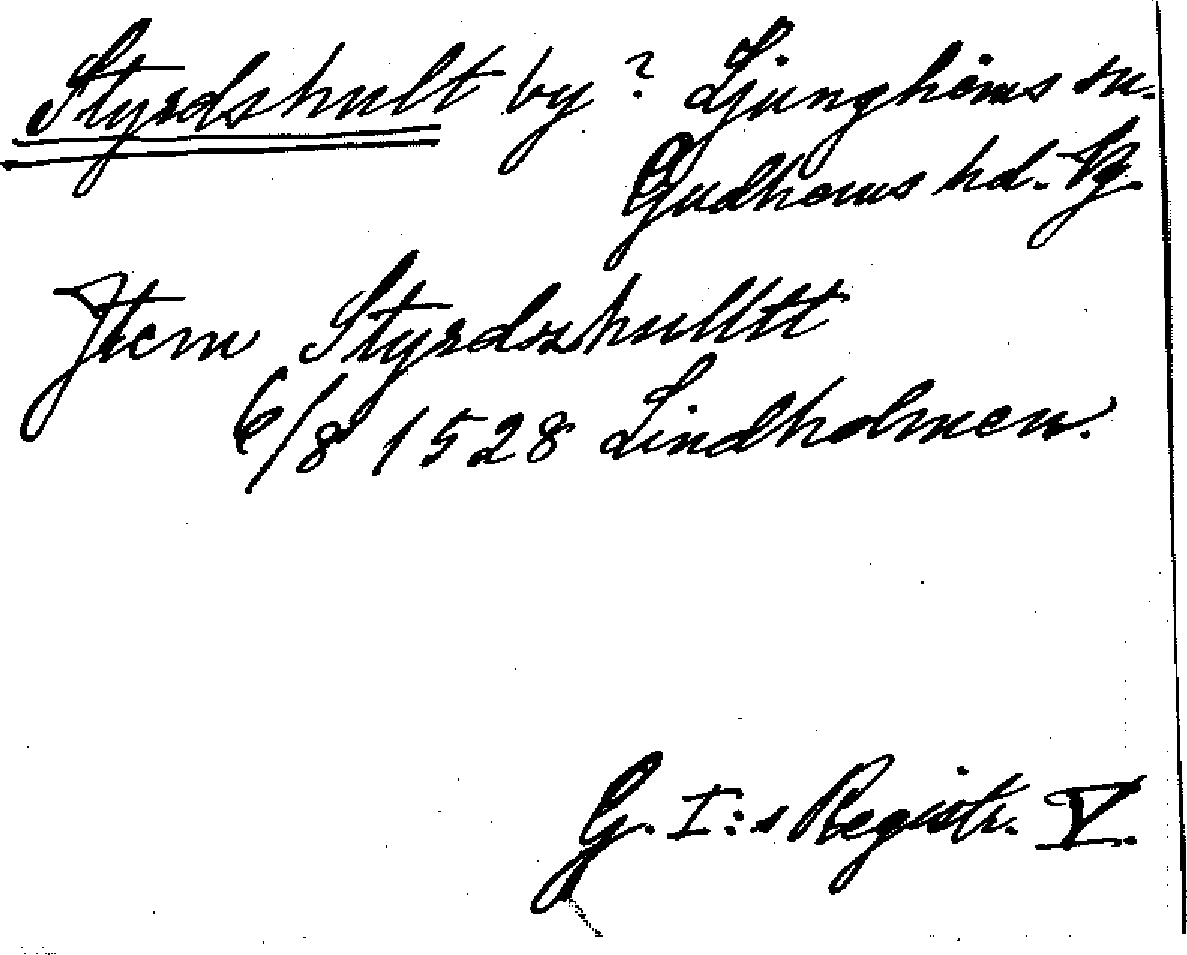 Styrdshult by? Ljunghems sn.
Gudhems hd. Vg.
Item Styrdszhulltt
6/8 1528 Lindholmen.
G. I:s Registr. V.